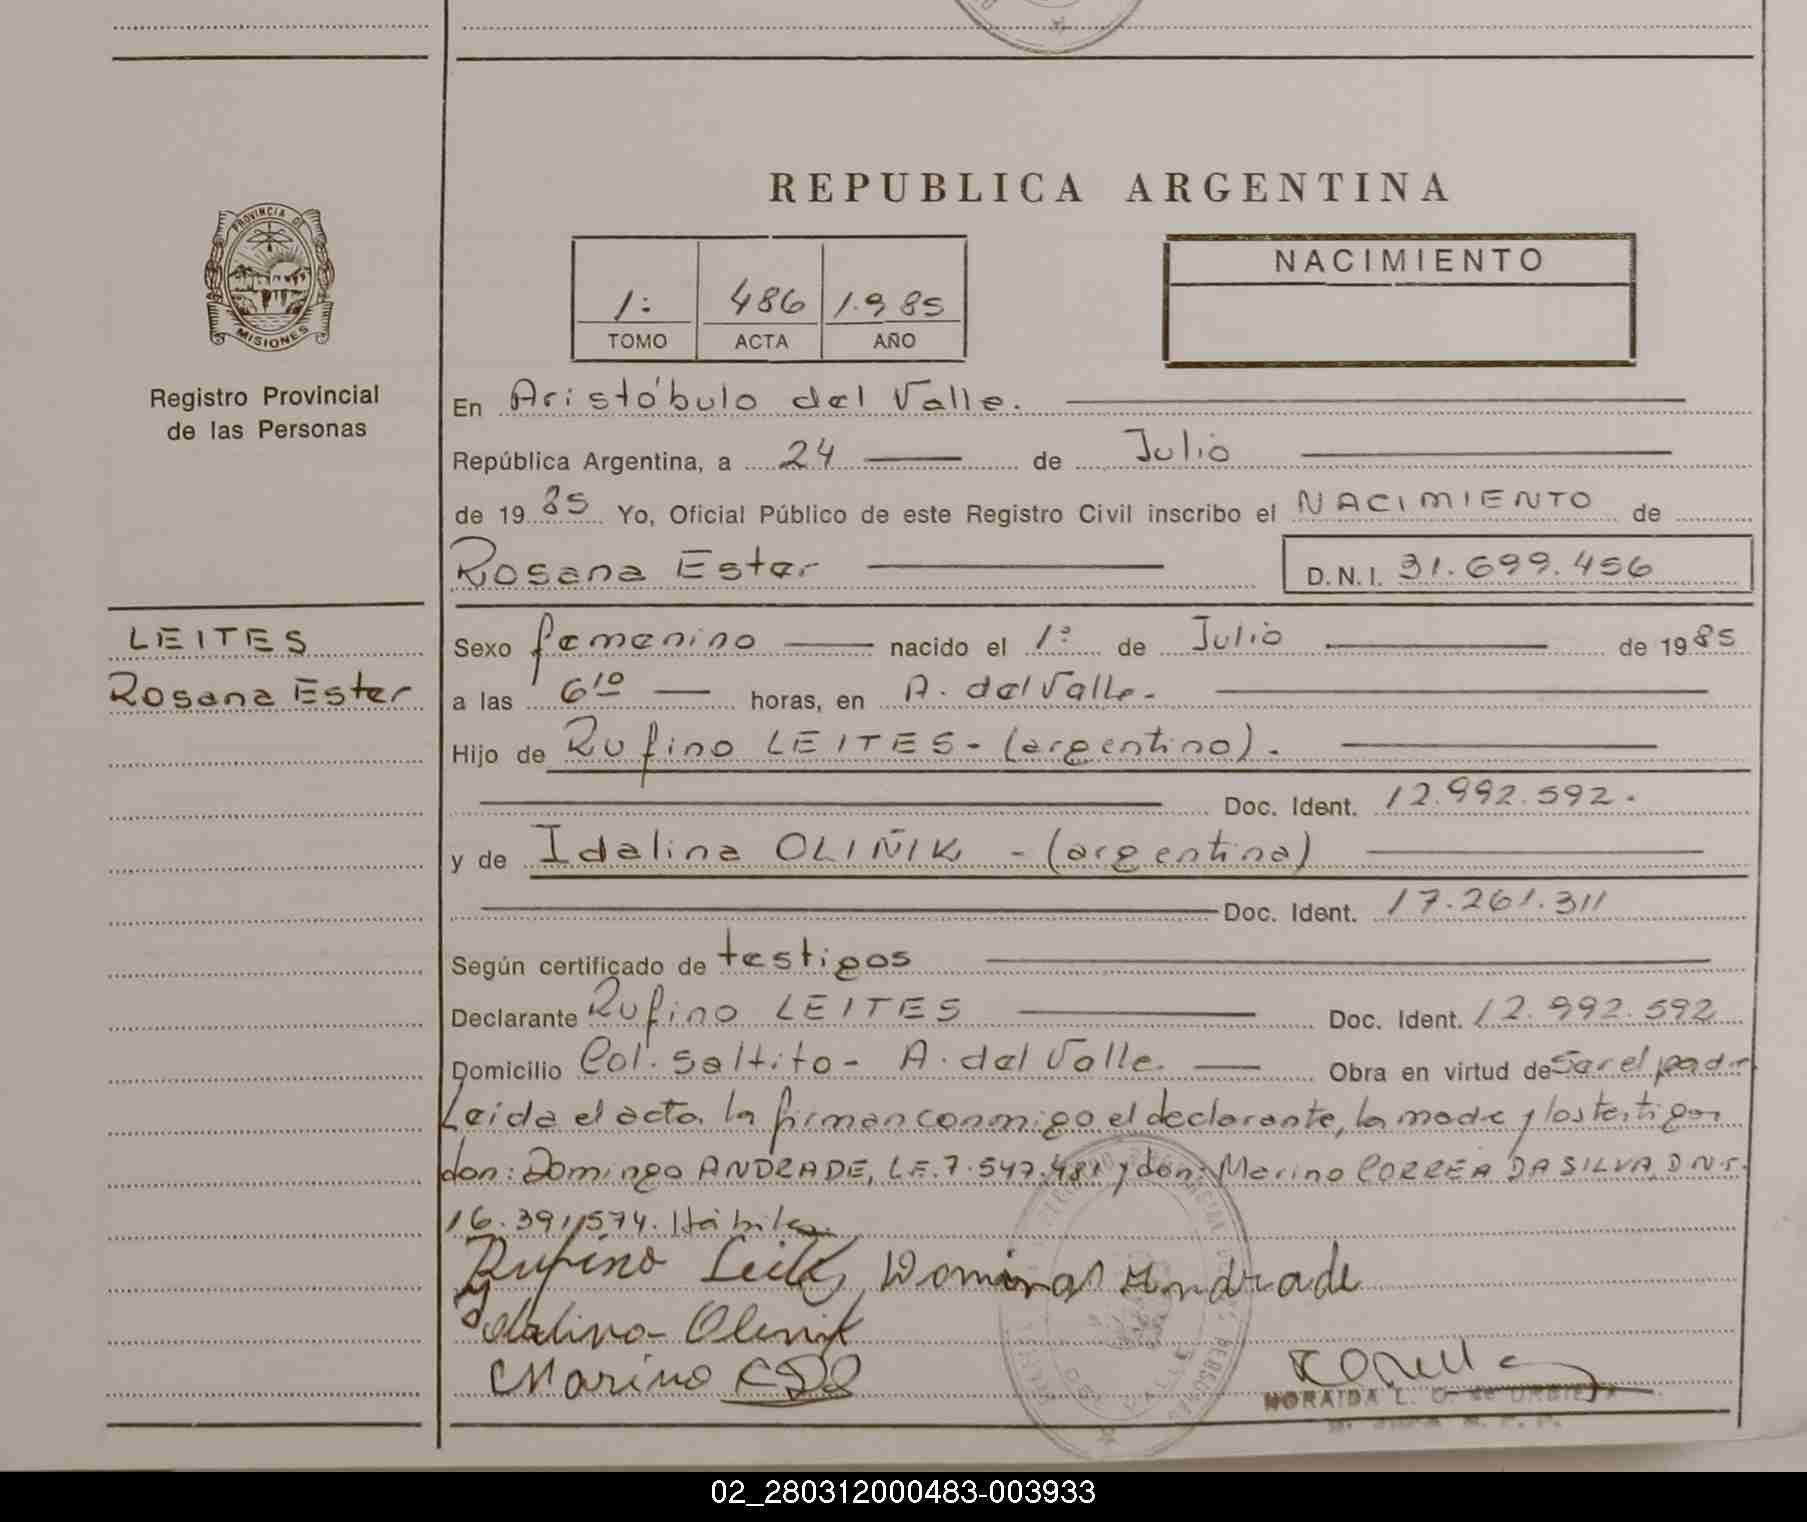 REPUBLICA ARGENTINA
PROVINCIA DE
MISIONES
Registro Provincial
de las Personas
1: 486 1.985
TOMO ACTA AÑO
NACIMIENTO
En Aristóbulo del Valle.
República Argentina, a 24 de Julio
de 1985 Yo, Oficial Público de este Registro Civil inscribo el NACIMIENTO de
Rosana Ester D.N.I. 31.699.456
LEITES
Rosana Ester
Sexo femenino nacido el 1º de Julio de 1985
a las 6 10 horas, en A. del Valle.
Hijo de Rufino LEITES - (argentino).
Doc. Ident. 12.992.592.
y de Idalina OLIÑIK - (argentina)
Doc. Ident. 17.261.311
Según certificado de testigos
Declarante Rufino LEITES Doc. Ident. 12.992.592
Domicilio Col. Saltito - A. del Valle. Obra en virtud de Ser el padre
Leida el acta la firman conmigo el declarante, la madre y los testigos
don: Domingo ANDRADE, L.E. 7.547.481 y don: Marino CORREA DA SILVA, D.N.I.
16.391,574. Hábiles.
Rufino Leites Domingo Andrade
Idalina Olenik
Marino CDS
NORAIDA L. O. de URBIETA
02_280312000483-003933